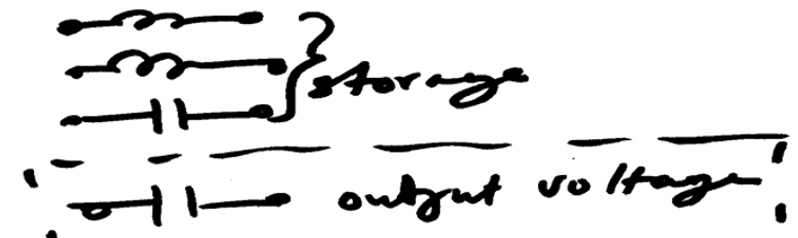 storage
output voltage